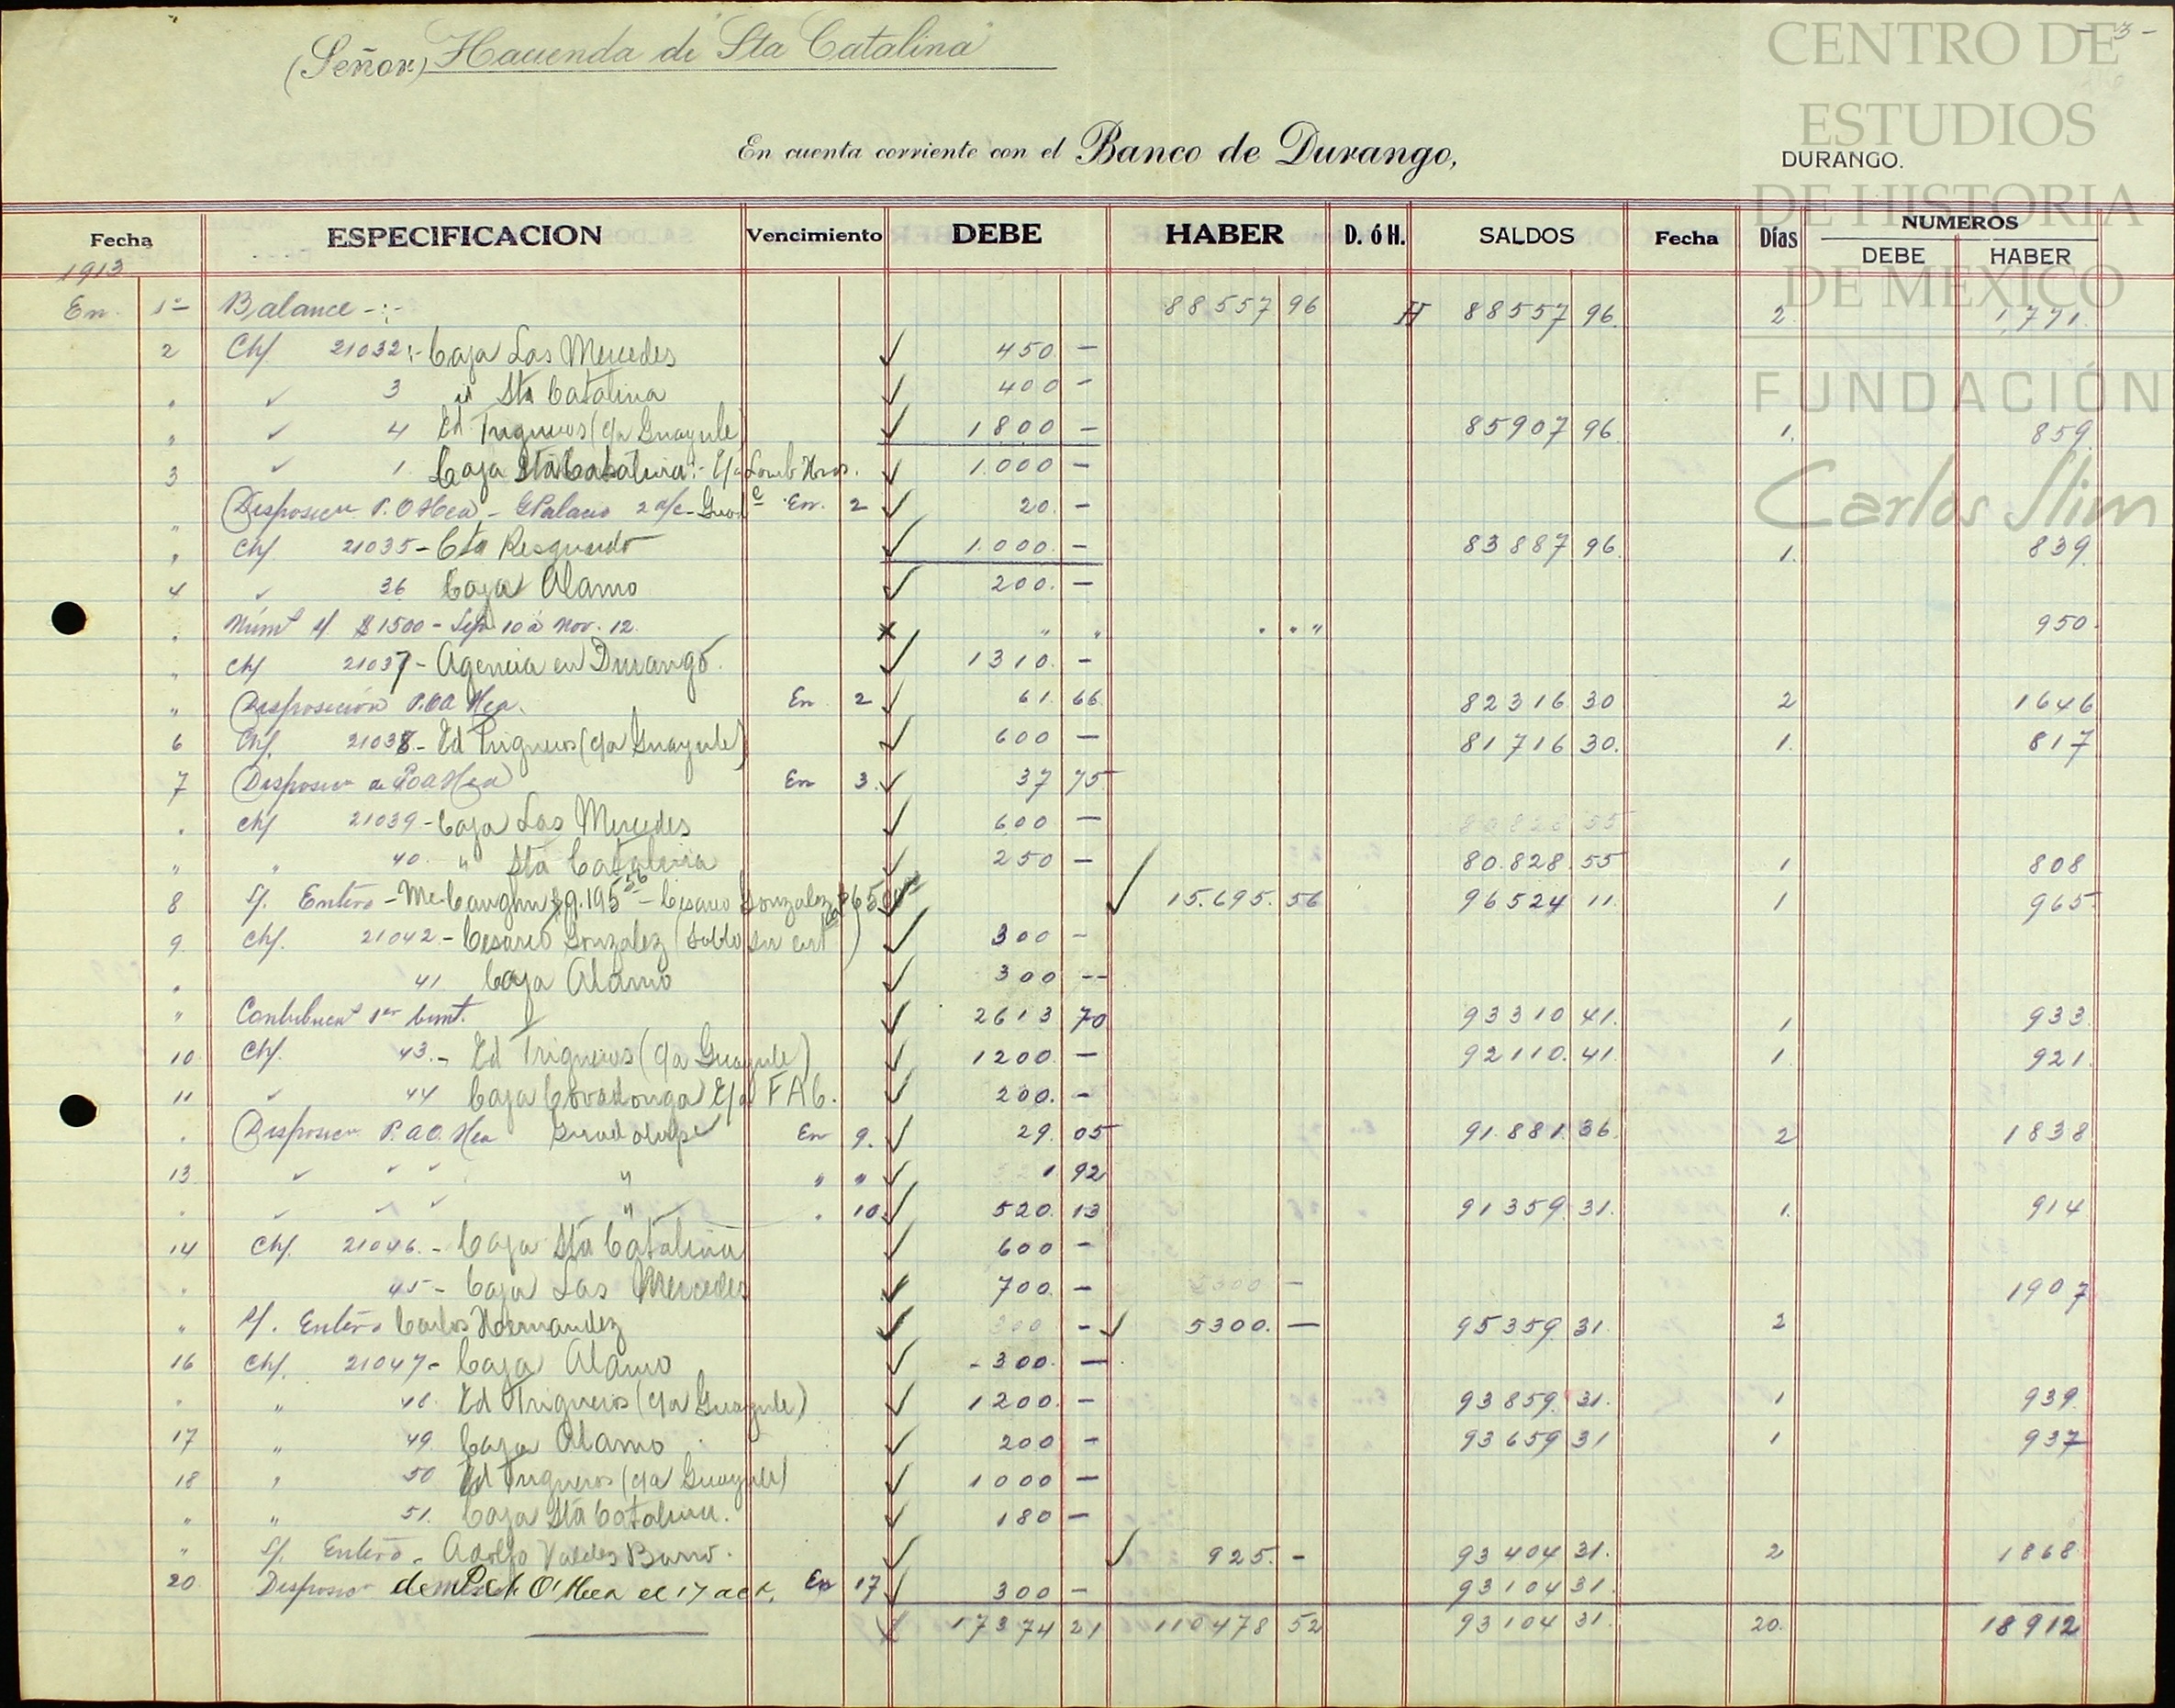 - 3 -
(Señor) Hacienda de Sta Catalina
En cuenta corriente con el Banco de Durango, DURANGO.
CENTRO DE
ESTUDIOS
DE HISTORIA
DE MEXICO
FUNDACIÓN
Carlos Slim
Fecha ESPECIFICACION Vencimiento DEBE HABER D. ó H. SALDOS Fecha Días NUMEROS
DEBE HABER
1913
En. 1º Balance -:- 88557 96 H 88557 96. 2 1,771.
2 Ch/. 21032:- Caja Las Mercedes 450 —
" " 3 " Sta Catalina 400 —
" " 4 Ed Trigueros (c/a Guayule) 1800 — 85907 96 1. 859
3 " 1 Caja Sta Catalina:- C/a Lomb Hnos. 1.000 —
" Disposicn P. O Hea - G Palacio 2 En. 2 20. —
" Ch/ 21035 - Cta Resguardo 1.000. — 83887 96. 1. 839.
4 " 36 Caja Alamo 200. —
" Núms s/. $1500 - Sep. 10 á Nov. 12. " " " " " 950.
" Ch/ 21037 - Agencia en Durango. 1310. —
" Disposición P. O a Hea. En 2 61. 66 82316 30 2 1646
6 Ch/. 21038. - Ed Trigueros (c/a Guayule) 600 — 81716 30. 1. 817
7 Disposicn En 3. 37 75
" Ch/ 21039 - Caja Las Mercedes 600 — 80828 55
" " 40. " Sta Catalina 250 — 80.828. 55 1 808
8 S/. Entero - Mc. Caughn $9.195 56 - Cesareo Gonzalez $6500 15.695. 56 96524 11. 1 965
9. Ch/. 21042 - Cesareo Gonzalez 300 —
" 41 Caja Alamo 300 --
" Contribucns 1er bimt. 2613 70 93310 41. 1 933
10 Ch/. 43. - Ed Trigueros (c/a Guayule) 1200. — 92110. 41. 1. 921.
11 " 44 Caja Covadonga C/a F A C. 200. —
" Disposicn P. a O. Hea Guadalupe En 9. 29. 05 91.881. 36. 2 1838
13 " " " " " " 1 92
" " " " " " 10. 520. 13 91359. 31. 1. 914
14 Ch/. 21046. - Caja Sta Catalina 600 —
" 45 - Caja Las Mercedes 700. — 5300 — 1907
" S/. Entero Carlos Hernandez — 5300. — 95359. 31. 2
16 Ch/. 21047 - Caja Alamo 300. —
" " 48. Ed Trigueros (c/a Guayule) 1200. — 93859. 31. 1 939.
17 " 49 Caja Alamo 200 — 93659 31 1 937
18 " 50 Ed Trigueros (c/a Guayule) 1000 —
" " 51. Caja Sta Catalina. 180 —
" S/. Entero. Adolfo Valdes 925. — 93404 31. 2 1868
20 Disposicn O'Hea el 17 act. En 17 300 — 93104 31.
17374 21 110478 52 93104 31 20. 18912